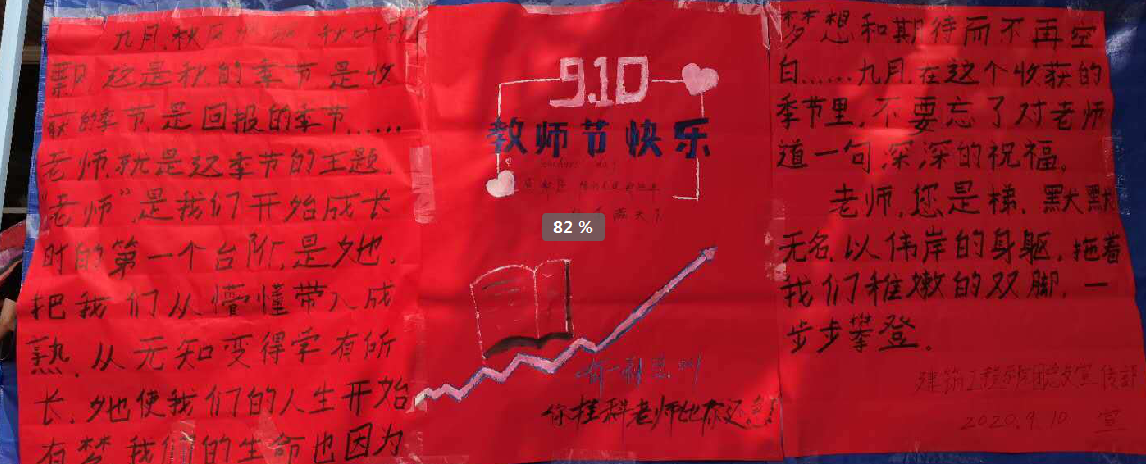 九月,秋风
飘,这是秋的季节是收
获的季节,是回报的季节......
老师,就是这季节的主题.
“老师”是我们开始成长
时的第一个台阶,是她.
把我们从懵懂带入成
熟,从无知变得学有所
长,她使我们的人生开始
有梦,我们的生命也因为
9.10
教师节快乐
82 %
有一种恐叫
你挂科老师比你还急!
梦想和期待而不再空
白......九月,在这个收获的
季节里,不要忘了对老师
道一句深深的祝福.
老师,您是梯,默默
无名,以伟岸的身躯,拖着
我们稚嫩的双脚,一
步步攀登.
建筑工程学院团总支宣传部
2020.9.10 宣